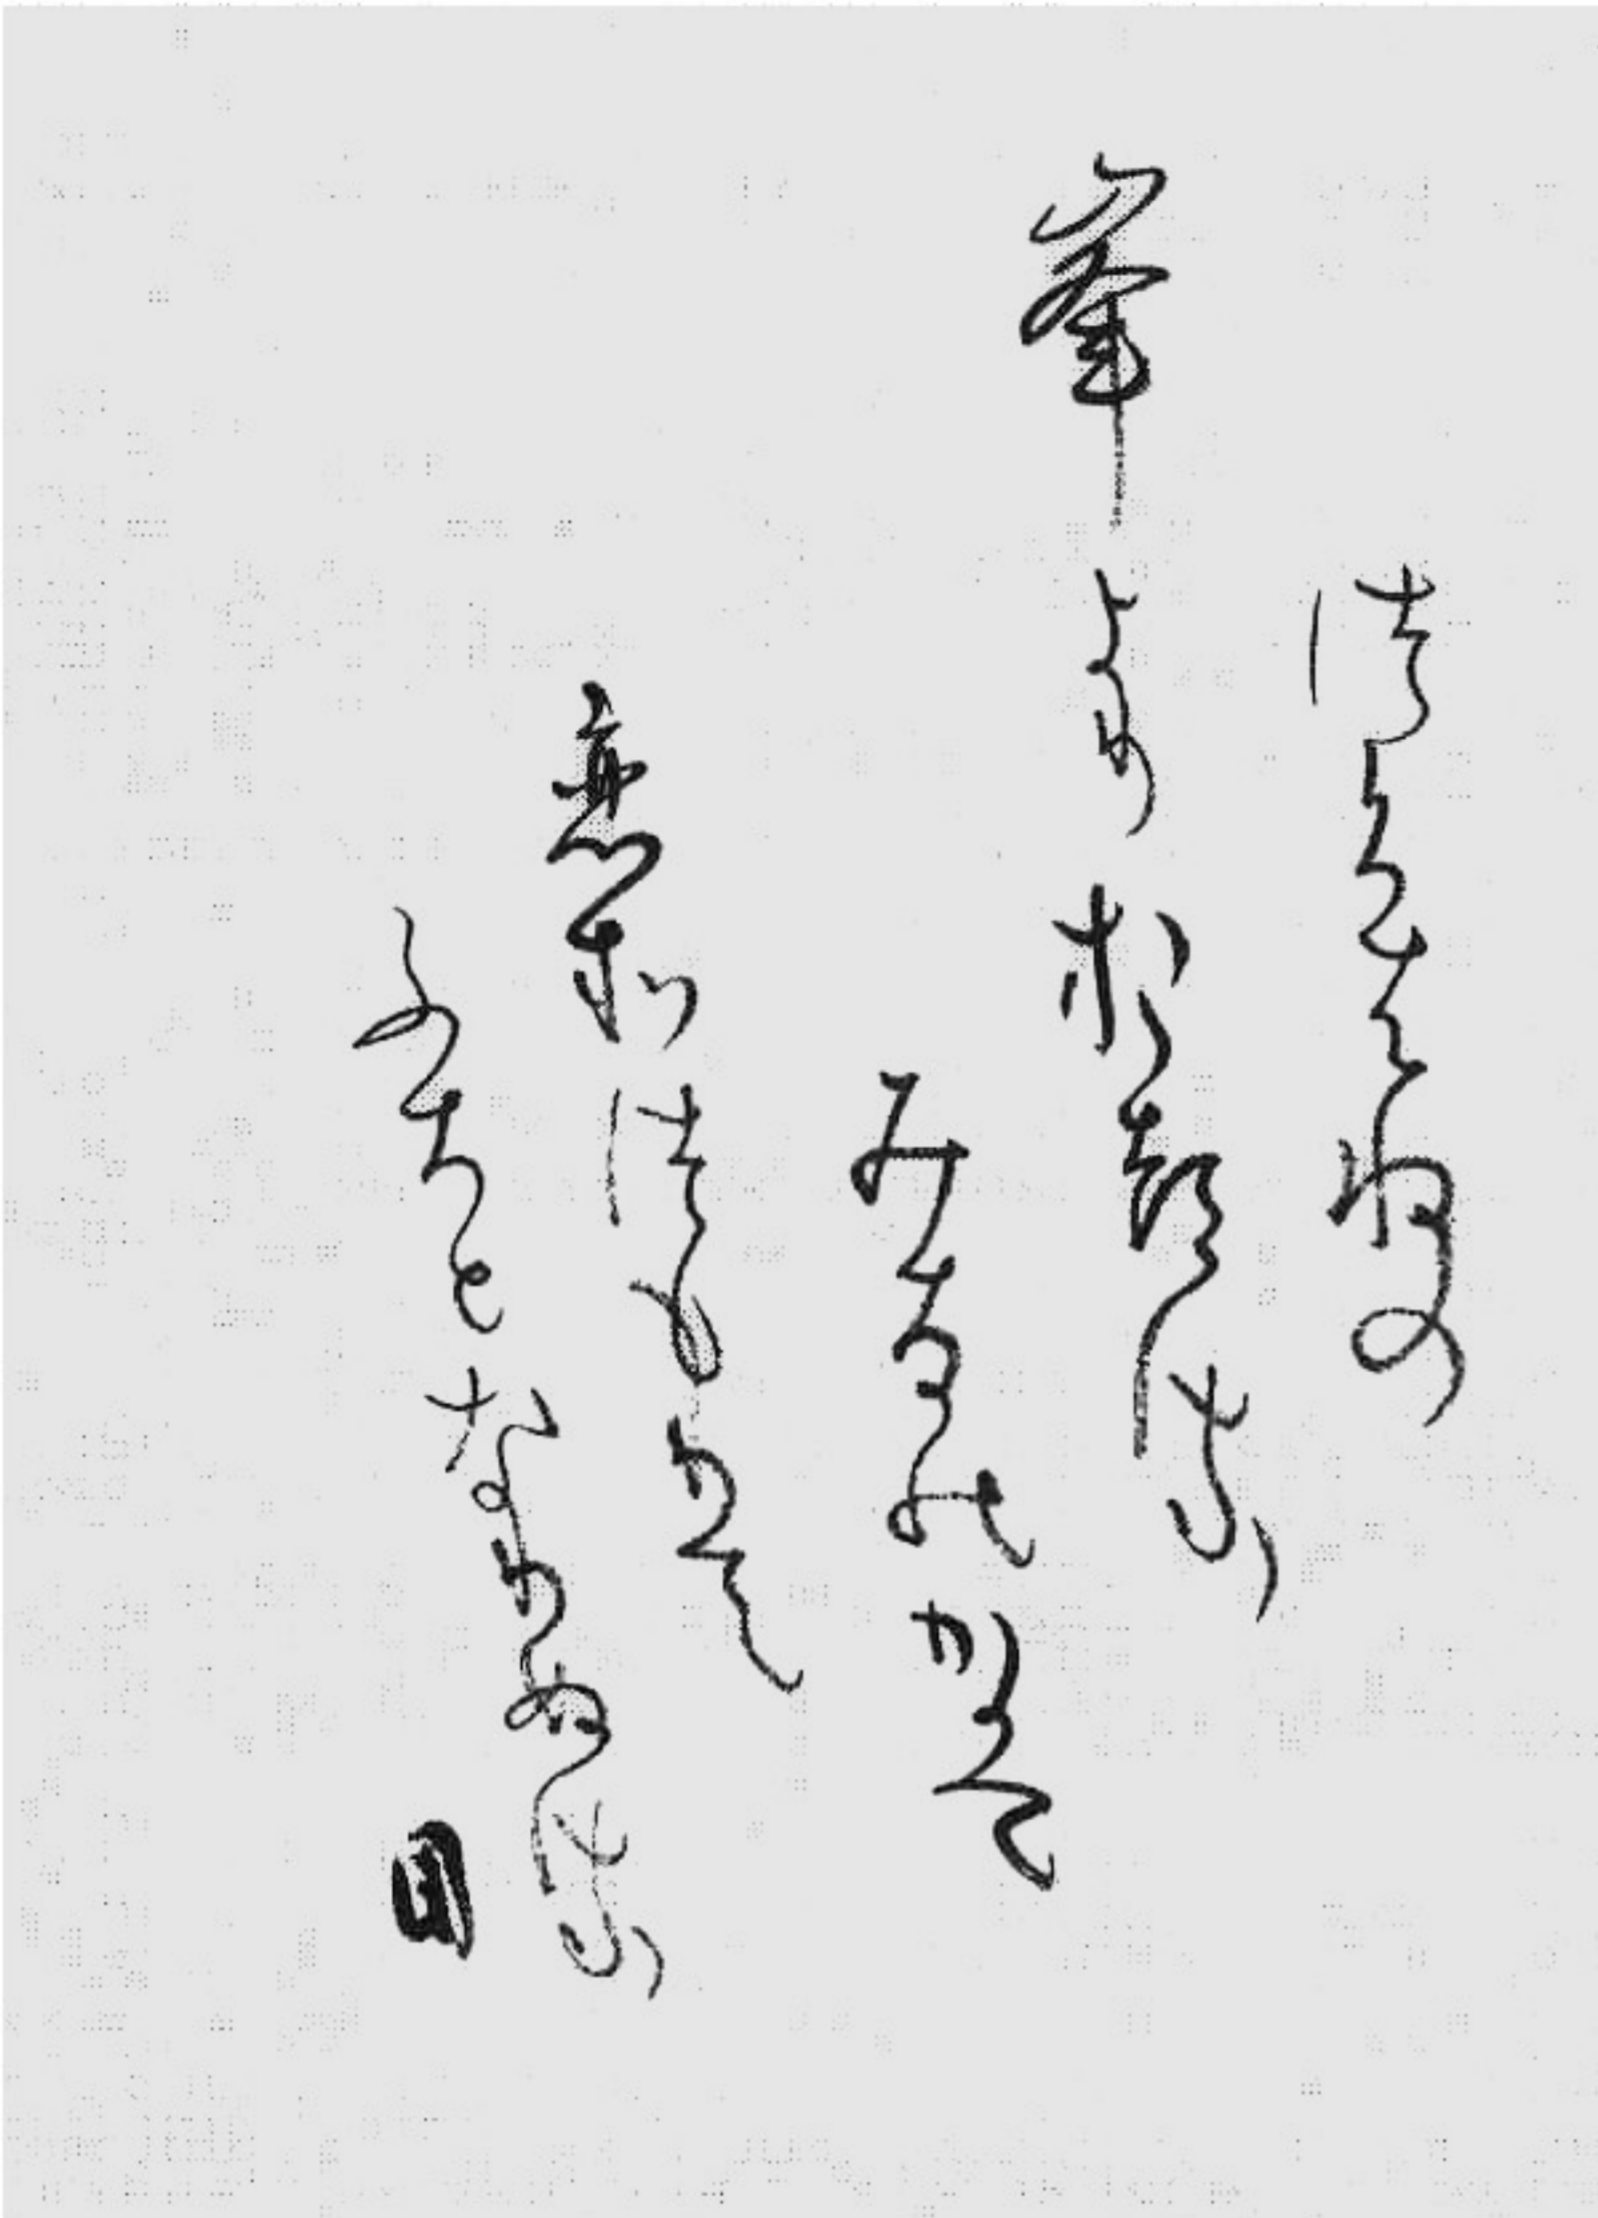 つくはねの
峯よりおつる
みなのかは
恋そつもりて
ふちとなりぬる